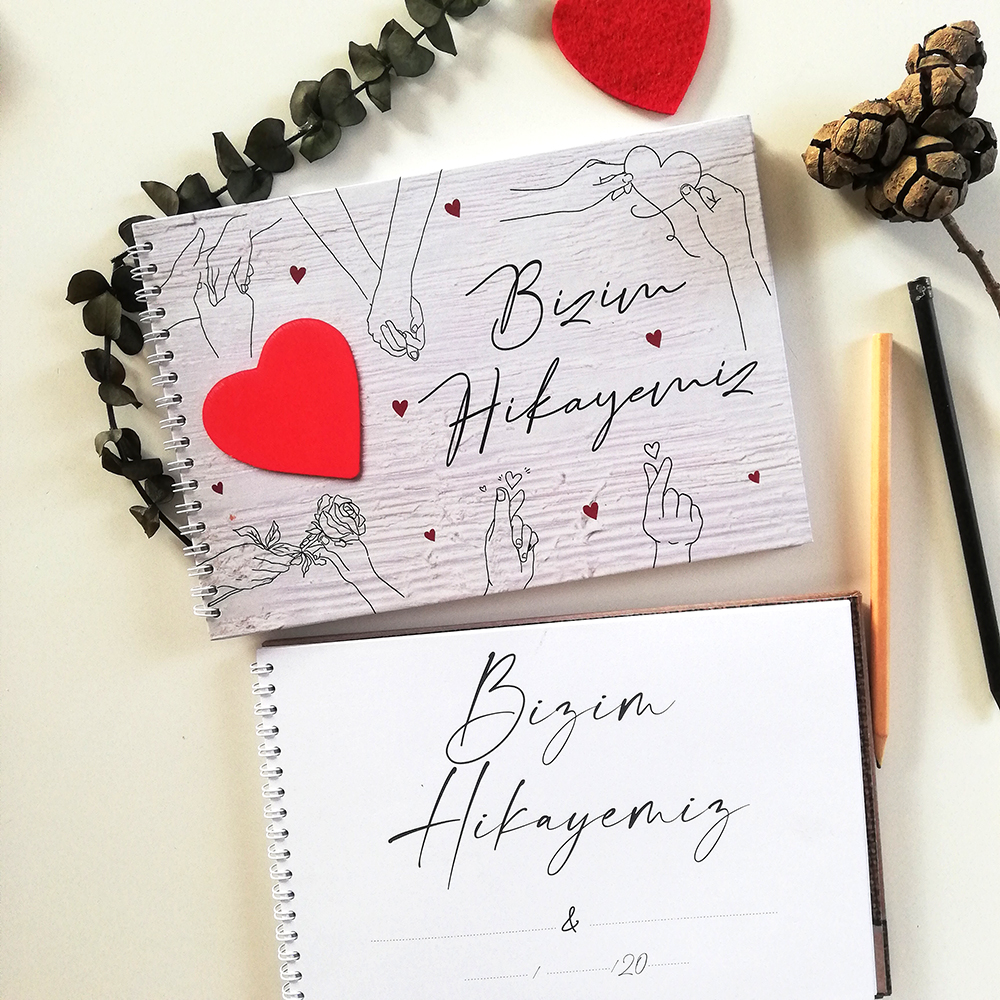 Bizim
Hikayemiz
Bizim
Hikayemiz
&
/ /20